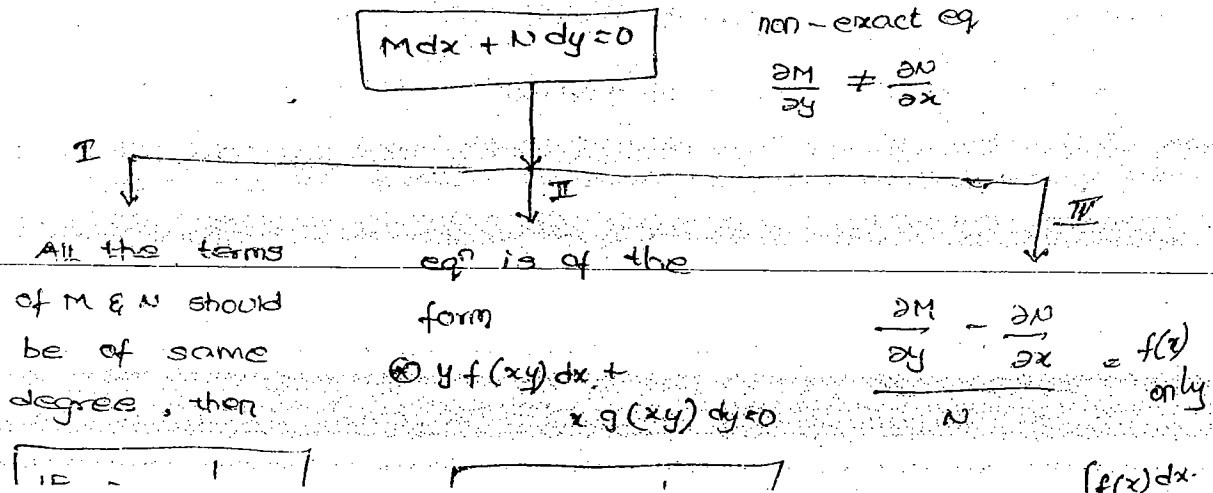 Mdx + Ndy = 0
non-exact eq
∂M/∂y ≠ ∂N/∂x
I
II
IV
All the terms
of M & N should
be of same
degree, then
eqn is of the
form
⊛ y f(xy) dx +
x g(xy) dy = 0
(∂M/∂y - ∂N/∂x)/N = f(x) only
∫f(x) dx